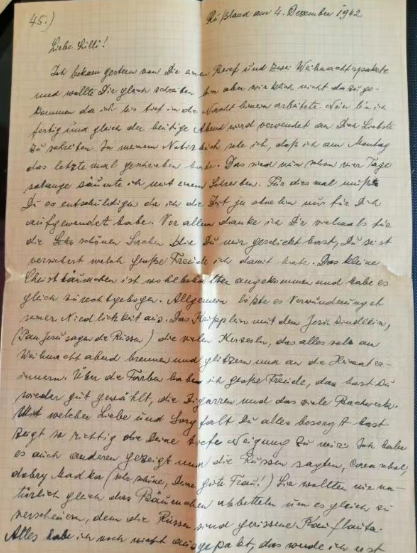 45.)
Rußland am 4. Dezember 1942
Liebe Lilli!
Ich bekam gestern von Dir einen Brief und zwei Weihnachtspakete
und wollte Dir gleich schreiben bin aber wirklich nicht dazu ge-
kommen da ich bis tief in die Nacht hinein arbeitete. Nun bin ich
fertig und gleich der heutige Abend wird verwendet an Dich Liebste
zu schreiben. In meinem Notizbuch sehe ich, daß ich am Montag
das letzte mal geschrieben habe. Das sind nun schon vier Tage
solange säumte ich mit einem Schreiben. Für dies mal mußt
Du es entschuldigen da ich die Zeit ja ohnehin nur für Dich
aufgewendet habe. Vor allem danke ich Dir vielmals für
die schönen Sachen die Du mir geschickt hast, Du seist
versichert welch große Freude ich damit habe. Das kleine
Christbäumchen ist wohlbehalten angekommen und habe es
gleich zurechtgebogen. Allgemein löste es Verwunderung
seiner Niedlichkeit aus. Das Kripplein mit dem Jesukindlein
(Pan Jesu sagen die Russen) die vielen Kerzerln, das alles soll am
Weihnachtabend brennen und glitzern und an die Heimat er-
innern. Über die Farben habe ich große Freude, das hast Du
wieder gut gewählt, die Zigarren und das viele Backwerk.
Mit welcher Liebe und Sorgfalt Du alles besorgt hast
zeigt so richtig die Deine tiefe Neigung zu mir. Ich habe
es auch anderen gezeigt und die Russen sagten,
dobry Madka (sehr schöne, Deine gute Frau!) Sie wollten mir na-
türlich gleich das Bäumchen abbetteln um es gleich zu
verscheuern, denn die Russen sind gerissene
Alles habe ich noch nicht ausgepackt, das werde ich erst